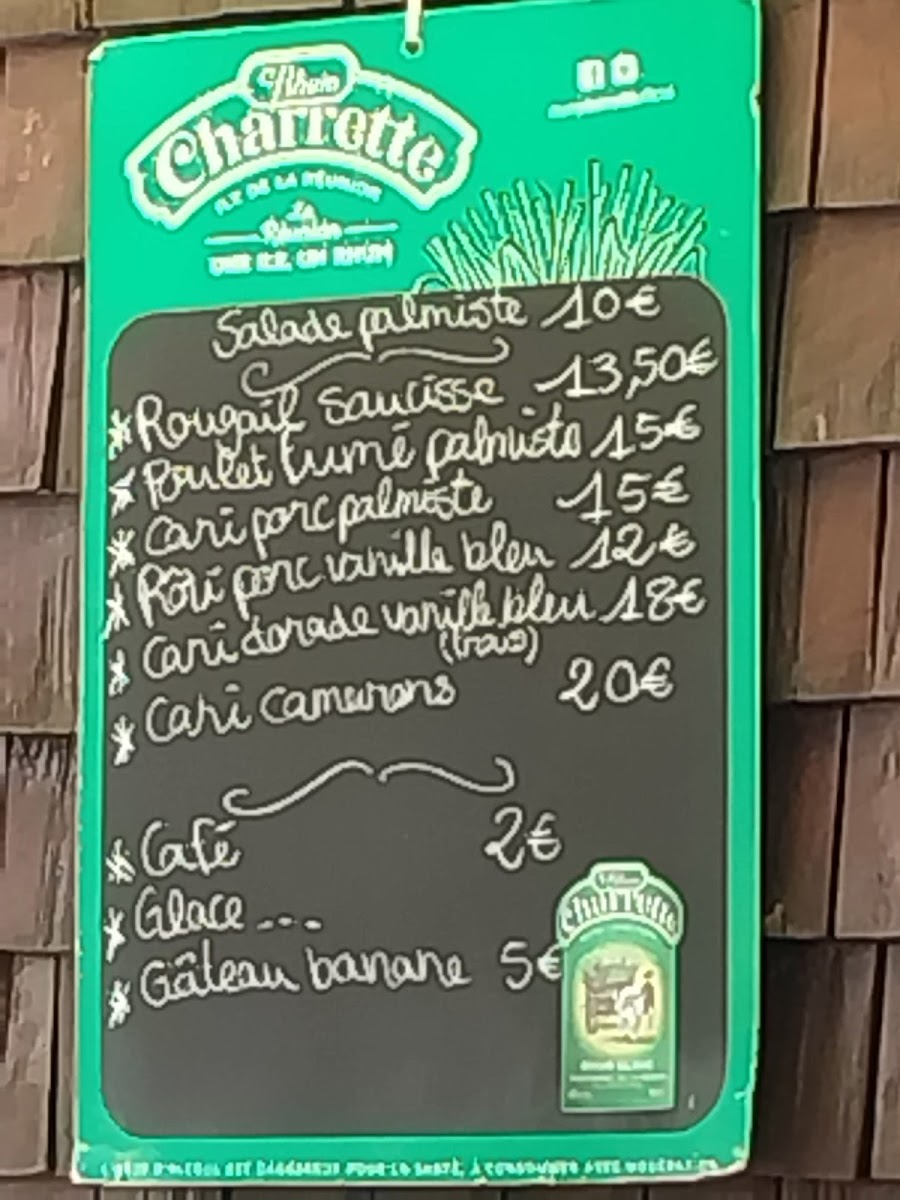 Rhum
Charrette
ILE DE LA RÉUNION
La
Réunion
UNE ILE, UN RHUM
Salade palmiste 10€
* Rougail saucisse 13,50€
* Poulet fumé palmiste 15€
* Cari porc palmiste 15€
* Rôti porc vanille bleu 12€
* Cari dorade vanille bleu 18€
(frais)
* Cari camarons 20€
* Café 2€
* Glace ...
* Gâteau banane 5€
Rhum
Charrette
RHUM BLANC
L'ABUS D'ALCOOL EST DANGEREUX POUR LA SANTÉ, À CONSOMMER AVEC MODÉRATION